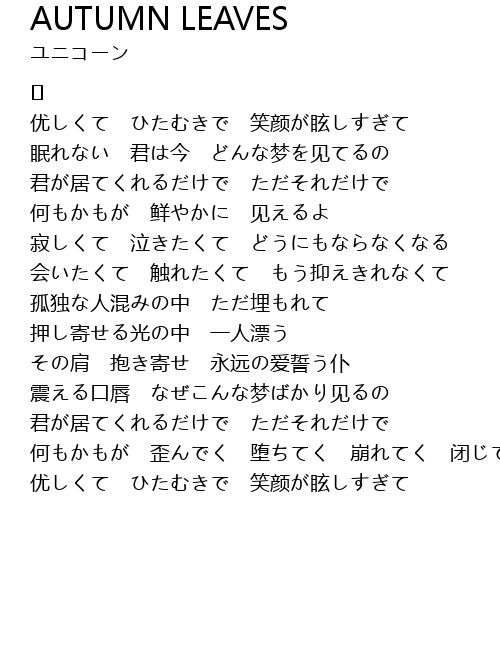 AUTUMN LEAVES
ユニコーン
优しくて　ひたむきで　笑颜が眩しすぎて
眠れない　君は今　どんな梦を见てるの
君が居てくれるだけで　ただそれだけで
何もかもが　鲜やかに　见えるよ
寂しくて　泣きたくて　どうにもならなくなる
会いたくて　触れたくて　もう抑えきれなくて
孤独な人混みの中　ただ埋もれて
押し寄せる光の中　一人漂う
その肩　抱き寄せ　永远の爱誓う仆
震える口唇　なぜこんな梦ばかり见るの
君が居てくれるだけで　ただそれだけで
何もかもが　歪んでく　堕ちてく　崩れてく　闭じて
优しくて　ひたむきで　笑颜が眩しすぎて